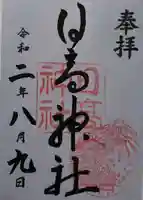 奉拝
日高神社
令和二年八月九日